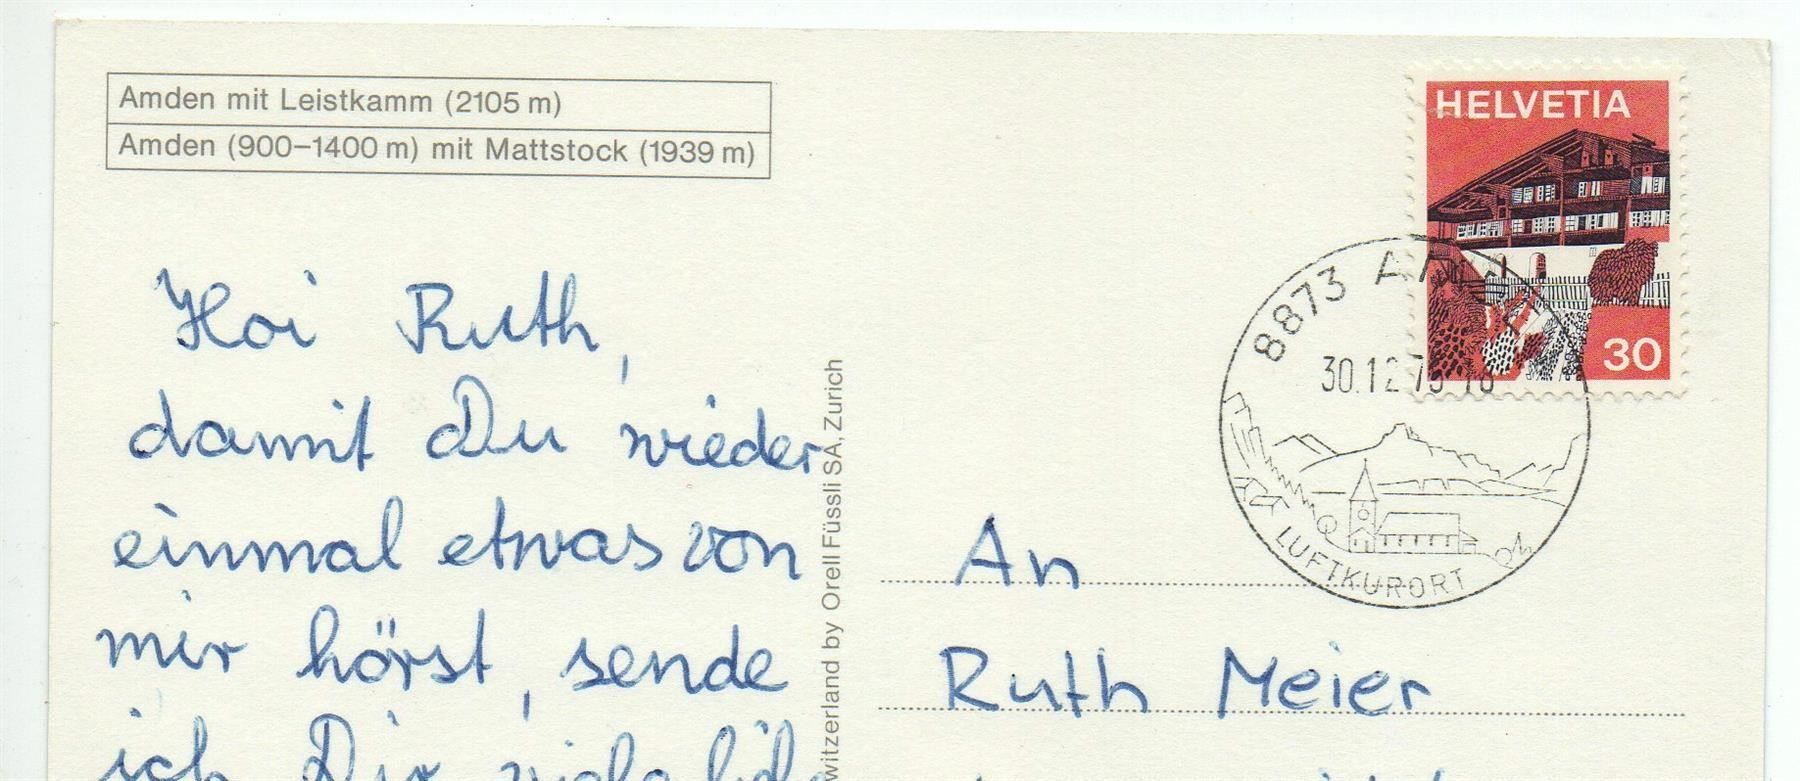 Amden mit Leistkamm (2105 m)
Amden (900–1400 m) mit Mattstock (1939 m)
HELVETIA
30
8873 AMDEN
30.12.75-18
LUFTKURORT
Hoi Ruth,
damit Du wieder
einmal etwas von
mir hörst, sende
ich Dir viele
witzerland by Orell Füssli SA, Zurich
An
Ruth Meier